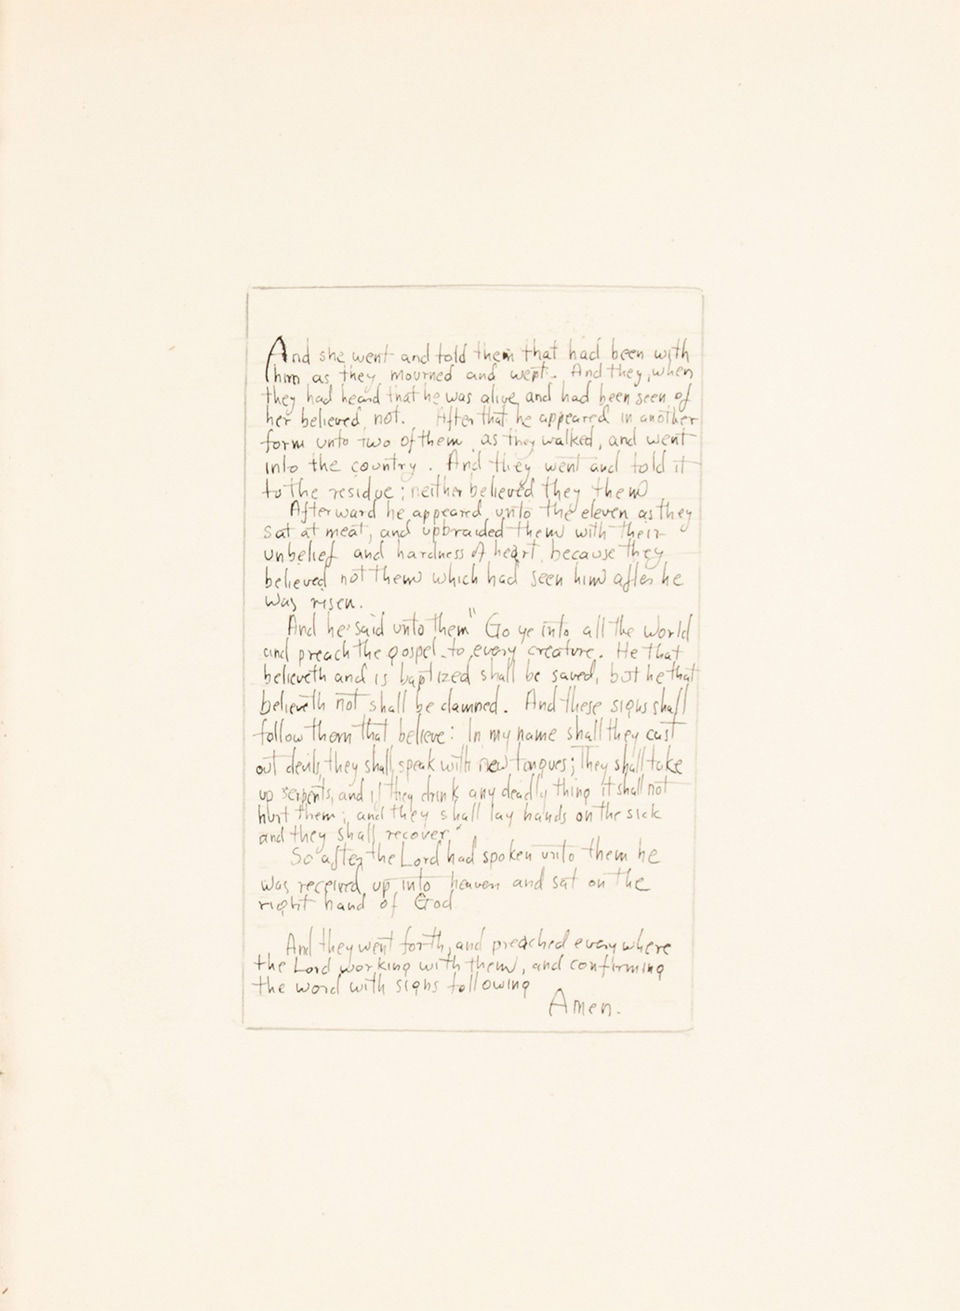 And she went and told them that had been with
him as they mourned and wept. And they, when
they had heard that he was alive and had been seen of
her believed not. After that he appeared in another
form unto two of them as they walked, and went
into the country. And they went and told it
to the residue; neither believed they them
Afterward he appeared unto the eleven as they
sat at meat, and upbraided them with their
unbelief and hardness of heart because they
believed not them which had seen him after he
was risen.
And he said unto them "Go ye into all the world
and preach the gospel to every creature. He that
believeth and is baptized shall be saved, but he that
believeth not shall be damned. And these signs shall
follow them that believe: In my name shall they cast
out devils, they shall speak with new tongues; They shall take
up serpents, and if they drink any deadly thing it shall not
hurt them; and they shall lay hands on the sick
and they shall recover".
So after the Lord had spoken unto them he
was received up into heaven and sat on the
right hand of God
And they went forth, and preached every where
the Lord working with them, and confirming
the word with signs following
Amen.